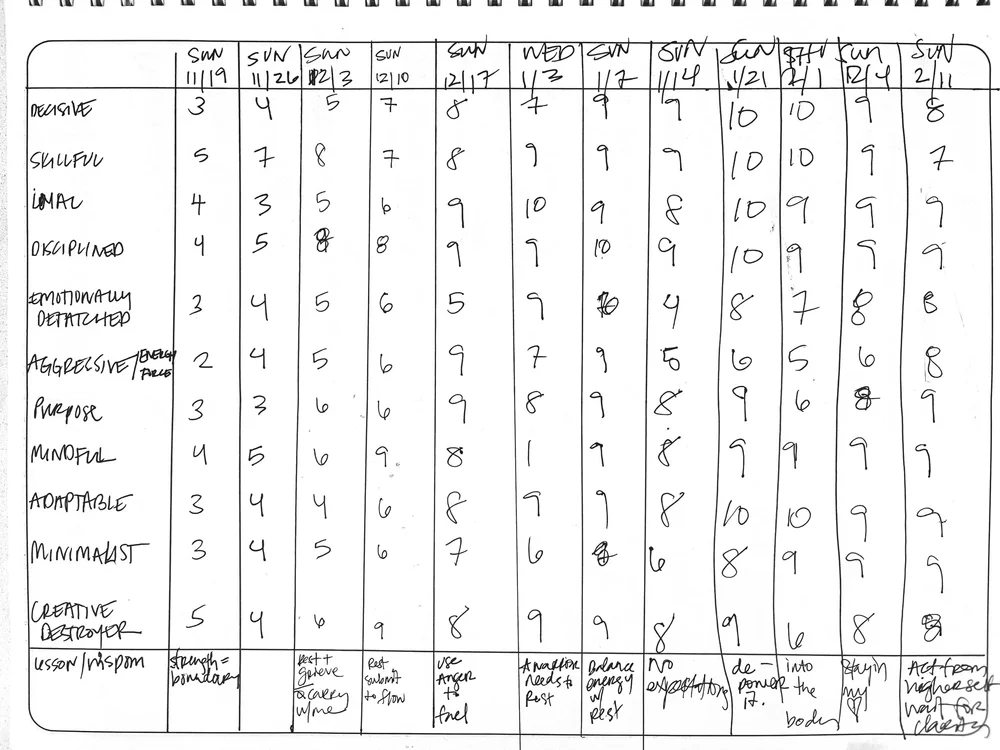 SUN SUN SUN SUN SUN WED SUN SUN SUN THU SUN SUN
11/19 11/26 12/3 12/10 12/17 1/3 1/7 1/14 1/21 2/1 2/4 2/11
DECISIVE 3 4 5 7 8 7 9 9 10 10 9 8
SKILLFUL 5 7 8 7 8 9 9 9 10 10 9 7
LOYAL 4 3 5 6 9 10 9 8 10 9 9 9
DISCIPLINED 4 5 8 8 9 9 10 9 10 9 9 9
EMOTIONALLY
DETATCHED 3 4 5 6 5 9 10 4 8 7 8 8
AGGRESSIVE/ENERGY
FORCE 2 4 5 6 9 7 9 5 6 5 6 8
PURPOSE 3 3 6 6 9 8 9 8 9 6 8 9
MINDFUL 4 5 6 9 8 1 9 8 9 9 9 9
ADAPTABLE 3 4 4 6 8 9 9 8 10 10 9 9
MINIMALIST 3 4 5 6 7 6 8 6 8 9 9 9
CREATIVE
DESTROYER 5 4 6 9 8 9 9 8 9 6 8 8
LESSON/WISDOM
strength =
boundary
Rest +
grieve
carry
w/me
Rest
submit
to flow
USE
ANGER
to
fuel
A warrior
needs to
Rest
Balance
energy
w/
Rest
NO
expectations
de-
power
it.
into
the
body
Stay in
my
ACT from
higher self
wait for
clarity